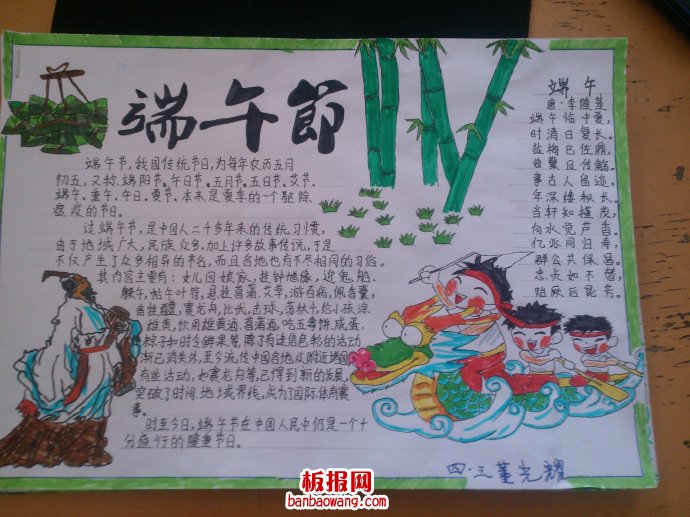 端午節
端午节,我国传统节日,为每年农历五月
初五,又称端阳节。午日节。五月节。五日节。艾节、
端午、重午。午日。夏节。本来是夏季的一个驱除
瘟疫的节日。
过端午节,是中国人二千多年来的传统习惯,
由于地域广大,民族众多,加上许多故事传说,于是
不仅产生了众多相异的节名,而且各地也有不尽相同的习俗。
其内容主要有:女儿回娘家,挂钟馗像,迎鬼船、
躲午,帖午叶符,悬挂菖蒲、艾草,游百病,佩香囊,
备牲醴,赛龙舟,比武,击球,荡秋千,给小孩涂
雄黄,饮用雄黄酒、菖蒲酒,吃五毒饼、咸蛋、
粽子和时令鲜果等,除了有迷信色彩的活动
渐已消失外,至今流传中国各地及附近诸国。
有些活动,如赛龙舟等,已得到新的发展,
突破了时间、地域界线,成为了国际体育赛
事。
时至今日,端午节在中国人民中仍是一个十
分盛行的隆重节日。
端午
唐·李隆基
端午临中夏,
时清日复长。
盐梅已佐鼎,
曲糵且传觞。
事古人留迹,
年深缕积长。
当轩知槿茂,
向水觉芦香。
亿兆同归寿,
群公共保昌。
忠贞如不替,
贻厥后昆芳。
四·三 董光耀
板报网
banbaowang.com